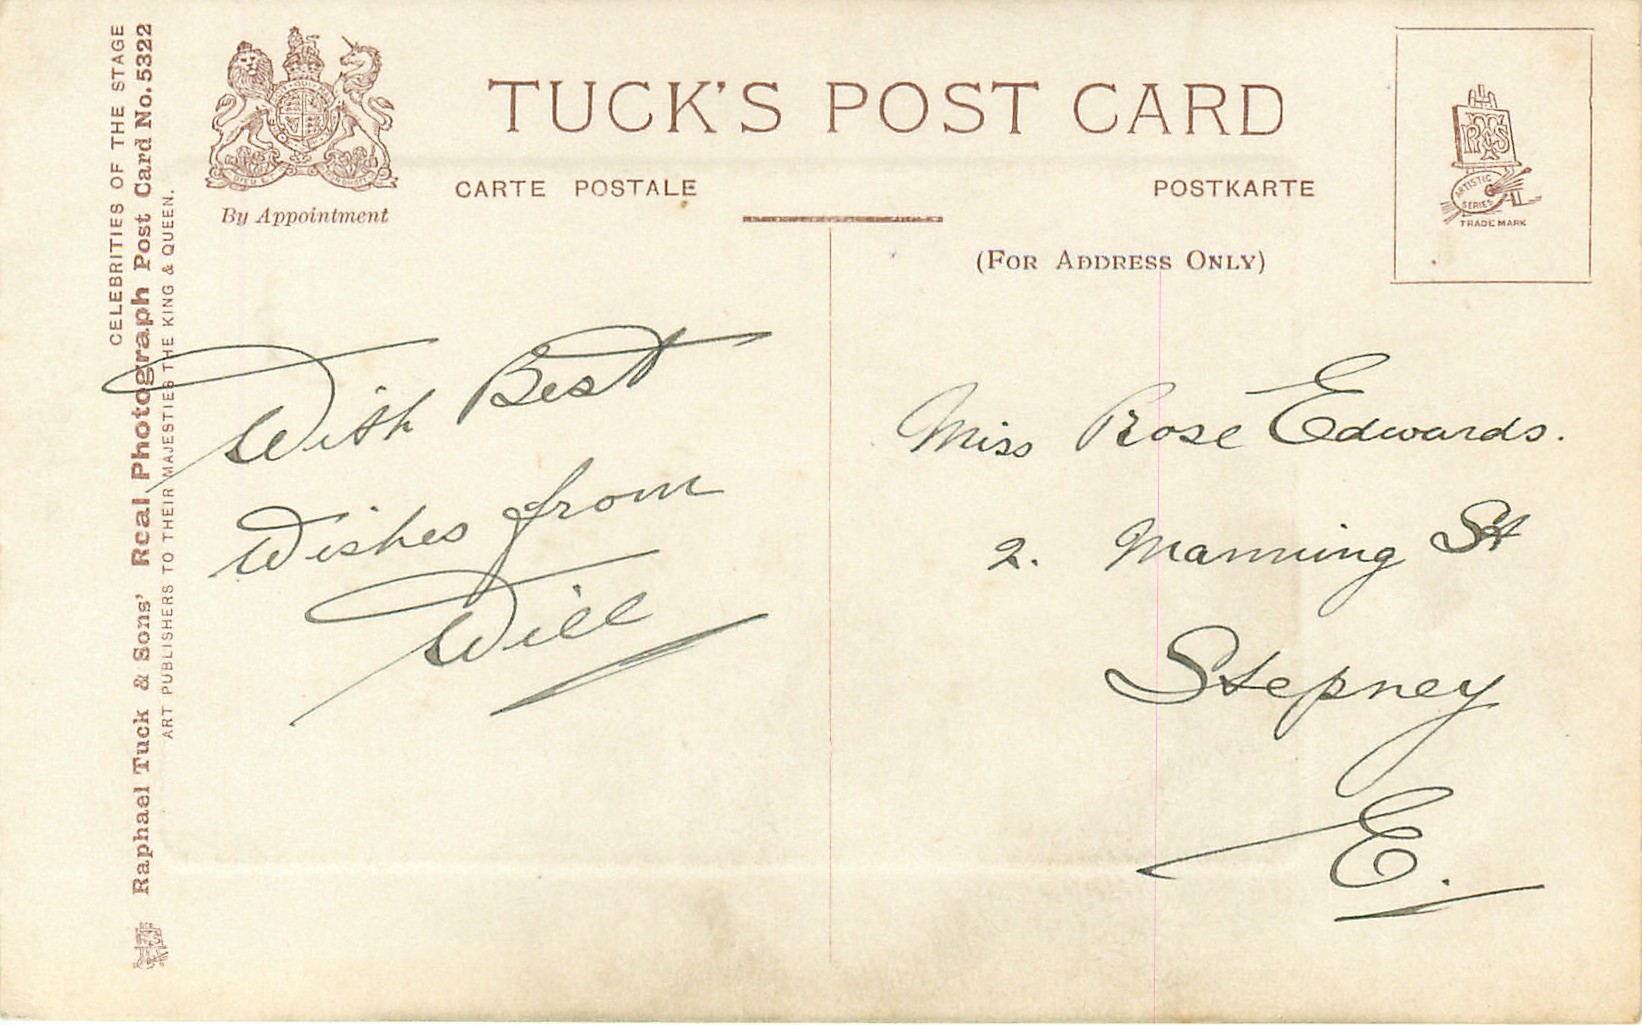 CELEBRITIES OF THE STAGE
Raphael Tuck & Sons' Real Photograph Post Card No. 5322
ART PUBLISHERS TO THEIR MAJESTIES THE KING & QUEEN.
By Appointment
TUCK'S POST CARD
CARTE POSTALE
POSTKARTE
(FOR ADDRESS ONLY)
ARTISTIC
SERIES
TRADE MARK
With Best
Wishes from
Will
Miss Rose Edwards.
2. Manning St
Stepney
E.